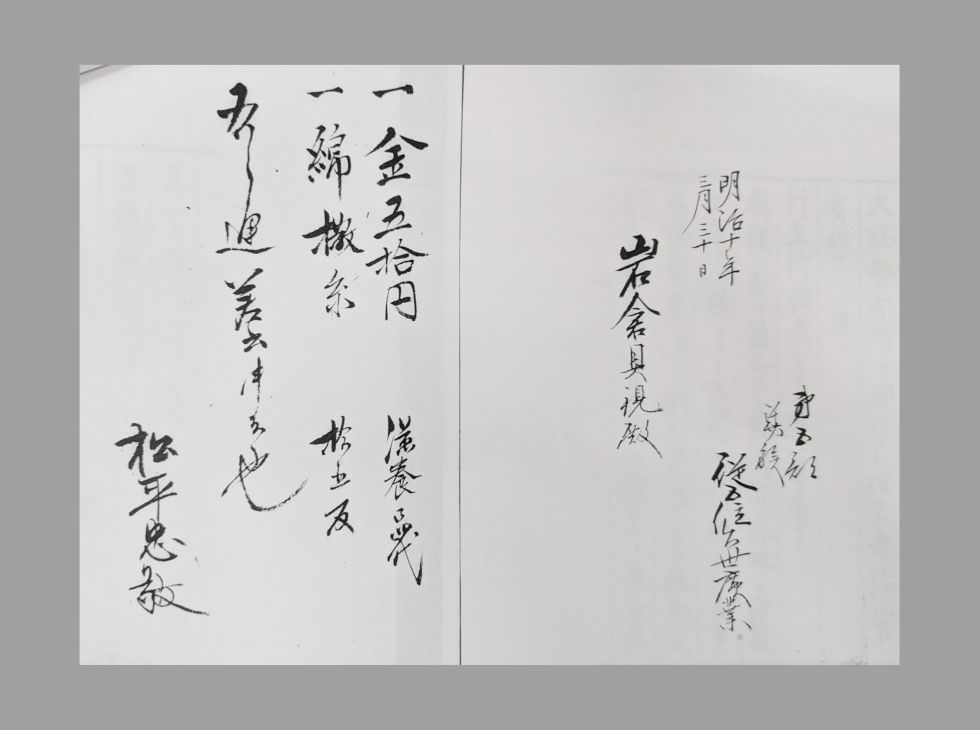 明治十年
三月三十日
第五部
華族
従五位久世廣業
岩倉具視殿
一金五拾円 滋養品代
一綿撒糸 拾五反
右之通差出申候也
松平忠敬